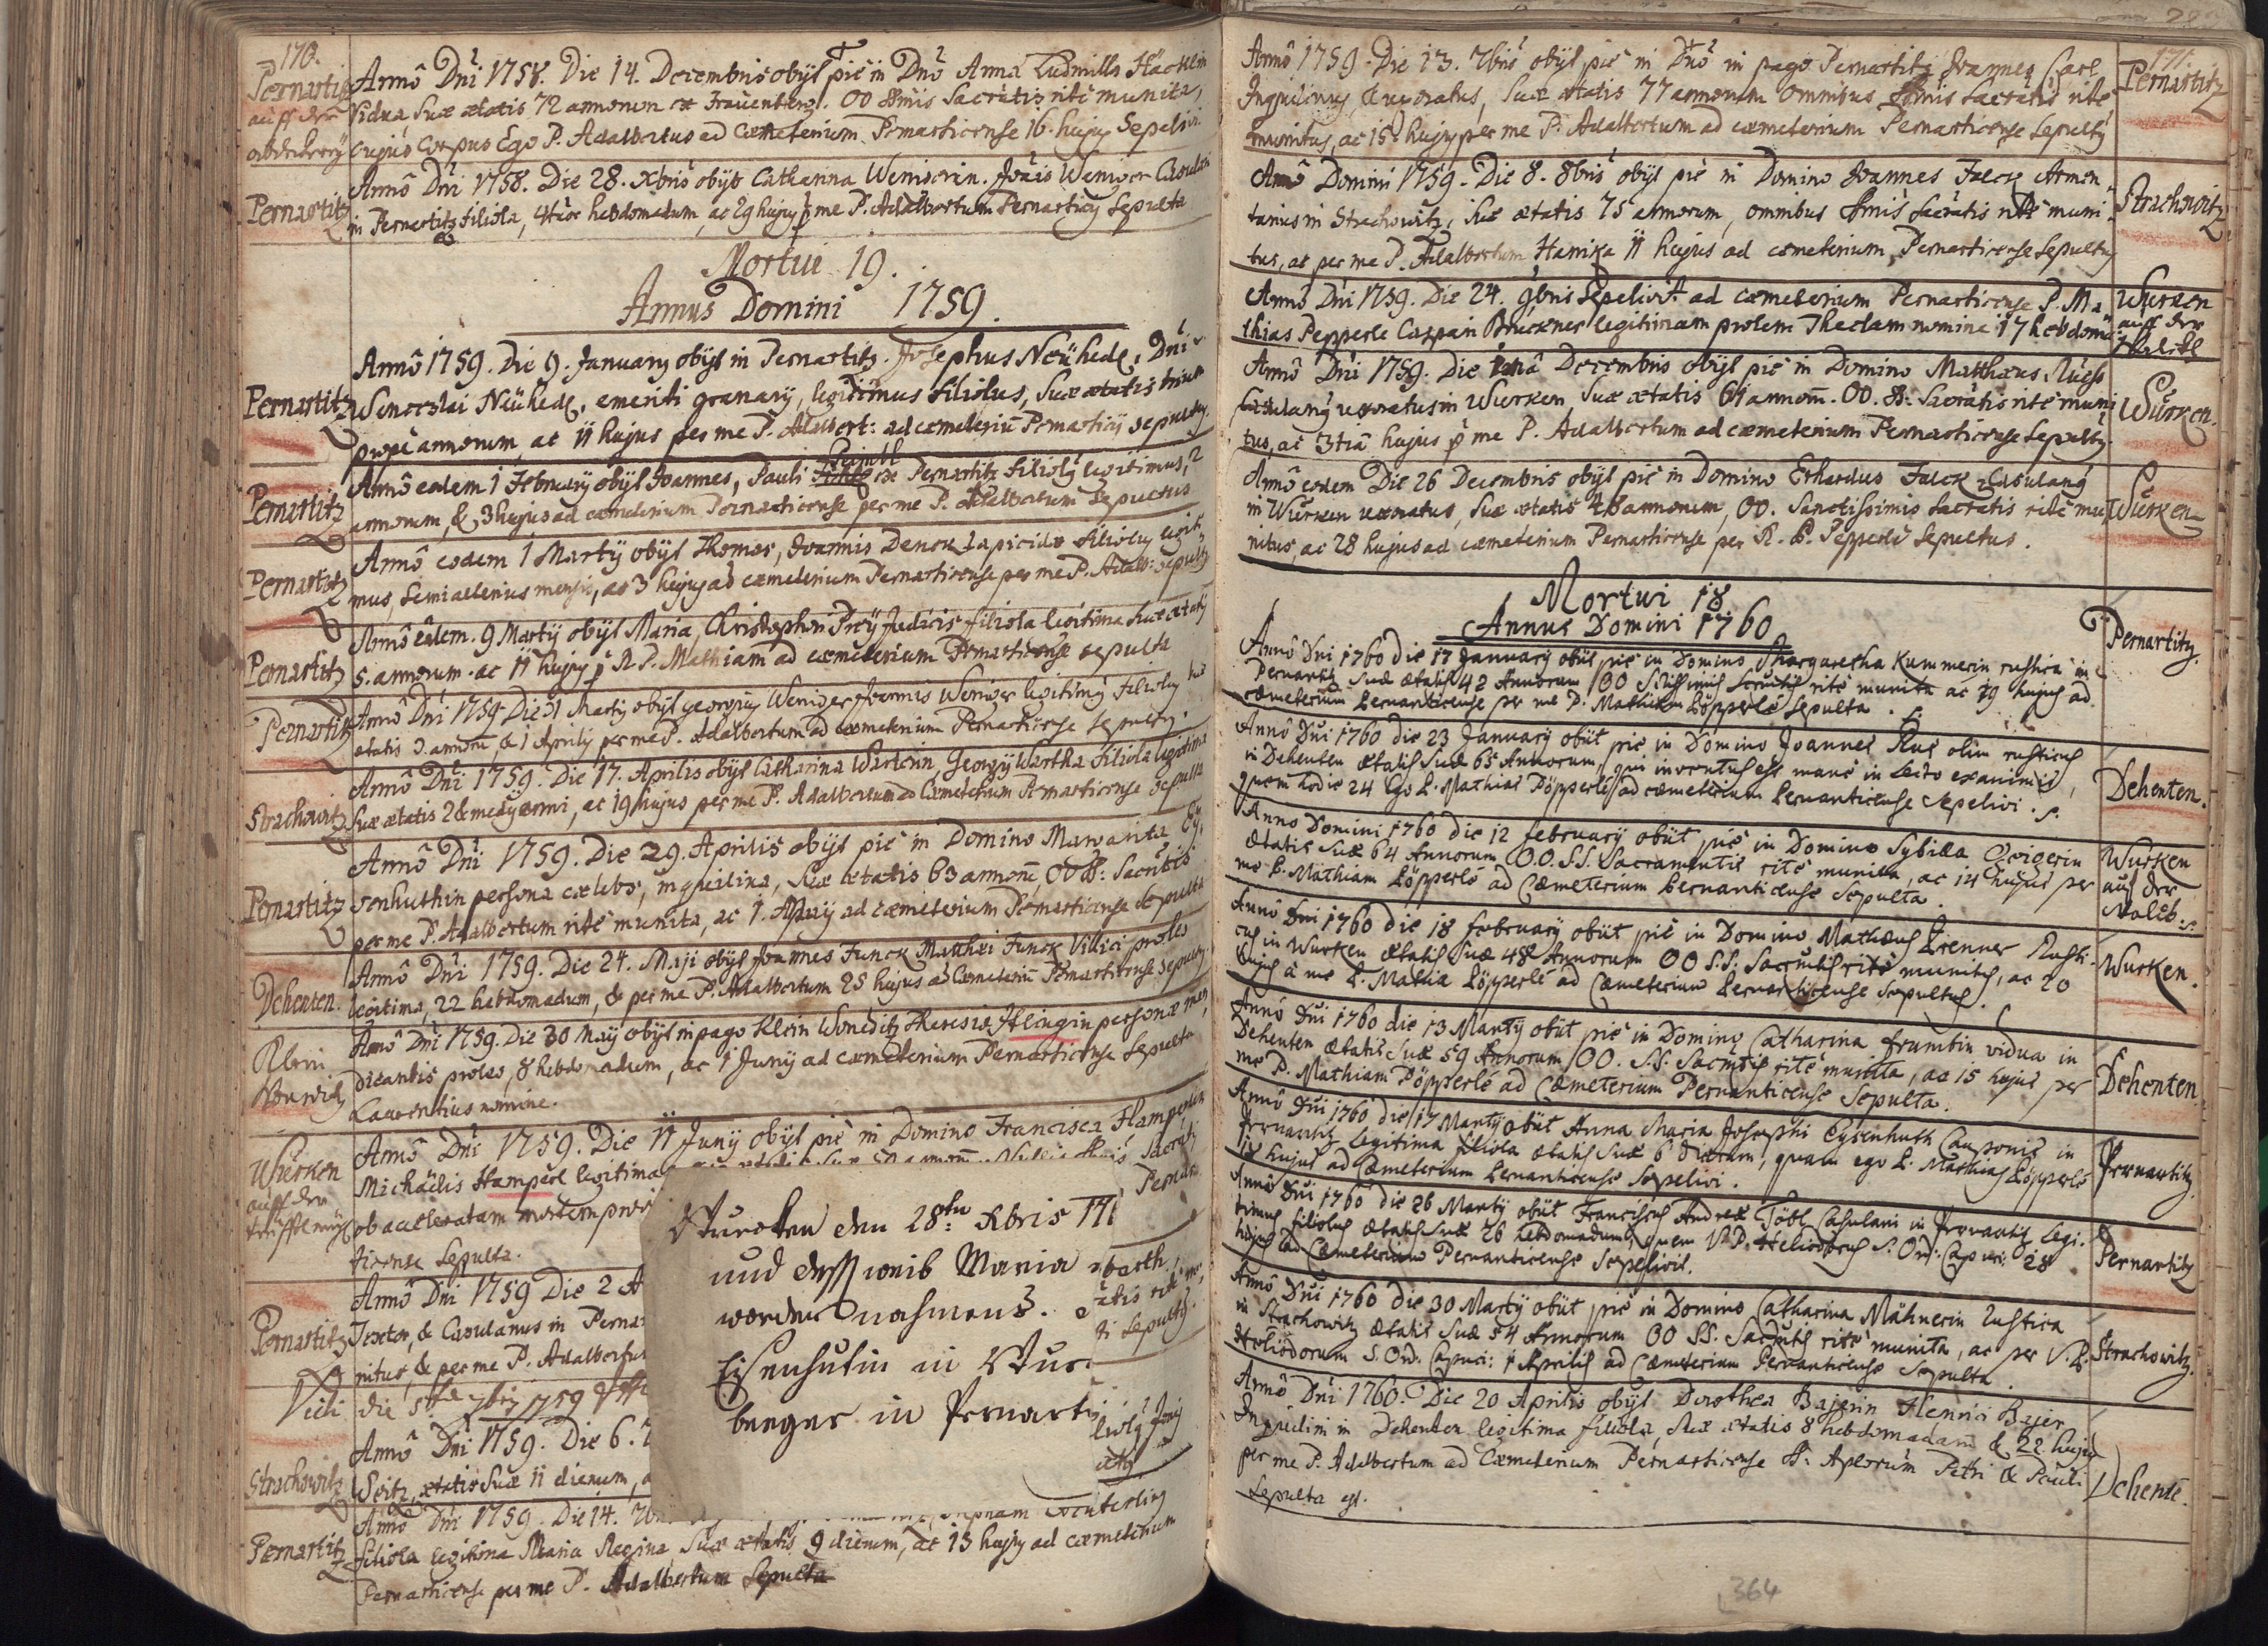 170.
Pernartitz
auff der
Annô Dni 1758. Die 14. Decembris obijt piè in Dnô Anna Ludmilla Hacklin
Vidua, Suæ ætatis 72 annorum ex Frauenberg. OO SSmis Sacratis ritè munita,
cujus Corpus Ego P. Adalbertus ad cæmeterium Pernarticense 16. hujus Sepelivi.
Pernartitz
Annô Dni 1758. Die 28. Xbris obijt Catharina Wenigerin. Joãis Weniger
in Pernartitz filiola, 4tuor hebdomadum, ac 29 hujus p me P. Adalbertum Pernarticij Sepulta
Mortui 19.
Annus Domini 1759.
Pernartitz
Annô 1759. Die 9. January obijt in Pernartitz. Josephus Neühedl, Dni
Wenceslai Neühedl, emeriti granarij, legitimus filiolus, Suæ ætatis trium
prope annorum, ac 11 hujus per me P. Adalbert: ad cæmeteriũ Pernarticij sepultus
Pernartitz
Annô eodem 1 February obijt Joannes, Pauli ex Pernartitz filiolus legitimus, 2
annorum, & 3 hujus ad cæmeterium Pernarticense per me P. Adalbertum Sepultus
Pernartitz
Annô eodem 1 Martij obijt Thomas, Joannis Denck Lapicidæ filiolus legiti-
mus, Semialterius mensis, ac 3 hujus ad cæmeterium Pernarticense per me P. Adalb: sepultus
Pernartitz
Annô eodem. 9 Martij obijt Maria, Christophori Preÿ Judicis filiola legitima Suæ ætatis
5. annorum. ac 11 hujus p R. P. Mathiam ad cæmeterium Pernarticense sepulta
Pernartitz
Annô Dni 1759 Die 31 Martij obijt georgius Weniger Joannis Weniger legitimus filiolus suæ
ætatis 3. annorũ & 1 Aprilis per me P. Adalbertum ad cæmeterium Pernarticense Sepultus.
Strachowitz
Annô Dni 1759. Die 17. Aprilis obijt Catharina Wartein Georgij Wartha filiola legitima
Suæ ætatis 2 & medij anni, ac 19 hujus per me P. Adalbertum ad Cæmeterium Pernarticense Sepulta
Pernartitz
Annô Dni 1759. Die 29. Aprilis obijt piè in Domino Margarita Ey-
senhuthin persona cælebs, inquilina, Suæ ætatis 63 annorũ, OO SS: Sacratis
per me P. Adalbertum ritè munita, ac 1. Maij ad cæmeterium Pernarticense Sepulta
Dehenten.
Annô Dni 1759. Die 24. Maji obijt Joannes Funck Matthæi Funck Villici proles
legitima, 22 hebdomadum, & per me P. Adalbertum 25 hujus ad Cæmeteriũ Pernarticense sepultus.
Klein
Wonetitz
Annô Dni 1759. Die 30 Maij obijt in pago Klein Woneditz Theresiæ Hlingin personæ men-
dicantis proles, 8 hebdomadum, ac 1 Junij ad cæmeterium Pernarticense Sepulta
Laurentius nomine.
Wurken
auff der
Annô Dni 1759. Die 11 Junij obijt piè in Domino Francisca Hamperlin
Michäelis Hamperl legitima
ob acceleratam mortem
ticense Sepulta.
Pernartitz
Annô Dni 1759 Die 2
Textor, & Casulanus in Pernar
nitus, & per me P. Adalbertum
Vidi die 5tâ 7bris 1759
Strachowitz
Annô Dni 1759. Die 6.
Weitz, ætatis Suæ 11 dierum,
Pernartitz
Annô Dni 1759. Die 14.
filiola legitima Maria Regina, Suæ ætatis 9 dierum, ac 15 hujus ad cæmeterium
Pernarticense per me P. Adalbertum Sepulta
Wurcken den 28ten Xbris 171
und dess weib Maria
worden nahmens.
Eisenhutin in Wur
berger in Pernart
171.
Annô 1759. Die 13. 7bris obijt piè in Dnô in pago Pernartitz Joannes Carl
Inquilinus, & uxoratus, Suæ ætatis 77 annorum omnibus SSmis Sacratis ritè
munitus, ac 15. hujus per me P. Adalbertum ad cæmeterium Pernarticense Sepultus
Pernartitz
Annô Domini 1759. Die 8. 8bris obijt piè in Domino Joannes Falck Armen-
tarius in Strachowitz, Suæ ætatis 75 annorum, omnibus SSmis Sacratis ritè muni-
tus, ac per me P. Adalbertum Hanika 11 hujus ad cæmeterium Pernarticense Sepultus
Strachowitz
Annô Dni 1759. Die 24. 9bris Sepelivit ad cæmeterium Pernarticense P. Ma-
thias Pepperle Caspari Bruckner legitimam prolem Theclam nomine 17 hebdoma:
Wurken
auff der
Annô Dni 1759. Die 1mâ Decembris obijt piè in Domino Matthæus Ruess
Casulanus uxoratus in Wurken Suæ ætatis 61 annorũ. OO. SS: Sacratis ritè muni
tus, ac 3tiâ hujus p me P. Adalbertum ad cæmeterium Pernarticense Sepultus
Wurken.
Annô eodem Die 26 Decembris obijt piè in Domino Erhardus Falck Casulanus
in Wurken uxoratus, Suæ ætatis 48 annorum, OO. Sanctissimis Sacratis ritè mu-
nitus, ac 28 hujus ad cæmeterium Pernarticense per R. P. Pepperle Sepultus.
Wurken
Mortui 18
Annus Domini 1760
Annô Dni 1760 die 17 January obiit piè in Domino Margaretha Kummerin rustica in
Pernartitz Suæ ætatis 42 Annorum OO SSissimis Sacratis ritè munita ac 19 hujus ad
cæmeterium Pernarticense per me P. Mathiam Pöpperle Sepulta.
Pernartitz.
Annô Dni 1760 die 23 January obiit piè in Domino Joannes Rus olim rusticus
in Dehenten ætatis Suæ 65 Annorum, qui inventus est mane in lecto exanimis,
quem hodie 24 Ego P. Mathias Pöpperle ad cæmeterium Pernarticense Sepelivi.
Dehenten.
Anno Domini 1760 die 12 february obiit piè in Domino Sybilla Geigerin
ætatis Suæ 64 Annorum OO. SS. Sacramentis ritè munita, ac 14 hujus per
me P. Mathiam Pöpperle ad Cæmeterium Pernarticense Sepulta.
Wurken
auf der
Annô Dni 1760 die 18 february obiit piè in Domino Mathæus Prenner Rusti-
cus in Wurken ætatis Suæ 48 Annorum OO SS. Sacratis ritè munitus, ac 20
hujus à me P. Mathia Pöpperle ad Cæmeterium Pernarticense Sepultus.
Wurken.
Annô Dni 1760 die 13 Martÿ obiit piè in Domino Catharina frumtin vidua in
Dehenten ætatis Suæ 59 Annorum OO. S.S. Sacratis ritè munita, ac 15 hujus per
me P. Mathiam Pöpperle ad Cæmeterium Pernarticense Sepulta.
Dehenten
Annô Dni 1760 die 17 Martÿ obiit Anna Maria Josephi Eysenhuth Cauponis in
Pernartitz Legitima filiola ætatis Suæ 6 dierum, quam ego P. Mathias Pöpperle
hujus ad Cæmeterium Pernarticense Sepelivi.
Pernartitz.
Annô Dni 1760 die 26 Martÿ obiit Franciscus Andreæ Töbl Casulani in Pernartitz Legi-
timus filiolus ætatis Suæ 26 hebdomadum, quem V.P. Heliodorus S. Ord: Capuci: 28
hujus ad Cæmeterium Pernarticense Sepelivit.
Pernartitz
Annô Dni 1760 die 30 Martÿ obiit piè in Domino Catharina Mähnerin Rustica
in Strachowitz ætatis Suæ 54 Annorum OO SS. Sacratis ritè munita, ac per V.P.
Heliodorum S. Ord. Capuci: 1 Aprilis ad Cæmeterium Pernarticense Sepulta
Strachowitz.
Annô Dni 1760. Die 20 Aprilis obijt Dorothea Bajerin Henrici Bajer
Inquilini in Dehenten legitima filiola, suæ ætatis 8 hebdomadarũ & 22 hujus
per me P. Adalbertum ad Cæmeterium Pernarticense SS. Aplorum Petri & Pauli
Sepulta est.
Dehente.
364